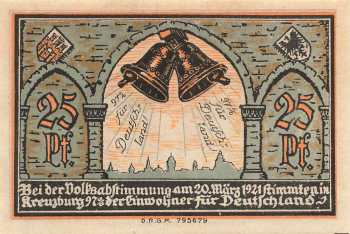 97% für Deutschland
97% für Deutschland
25 Pf.
25 Pf.
Bei der Volksabstimmung am 20. März 1921 stimmten in
Kreuzburg 97% der Einwohner für Deutschland
D.R.G.M. 795679